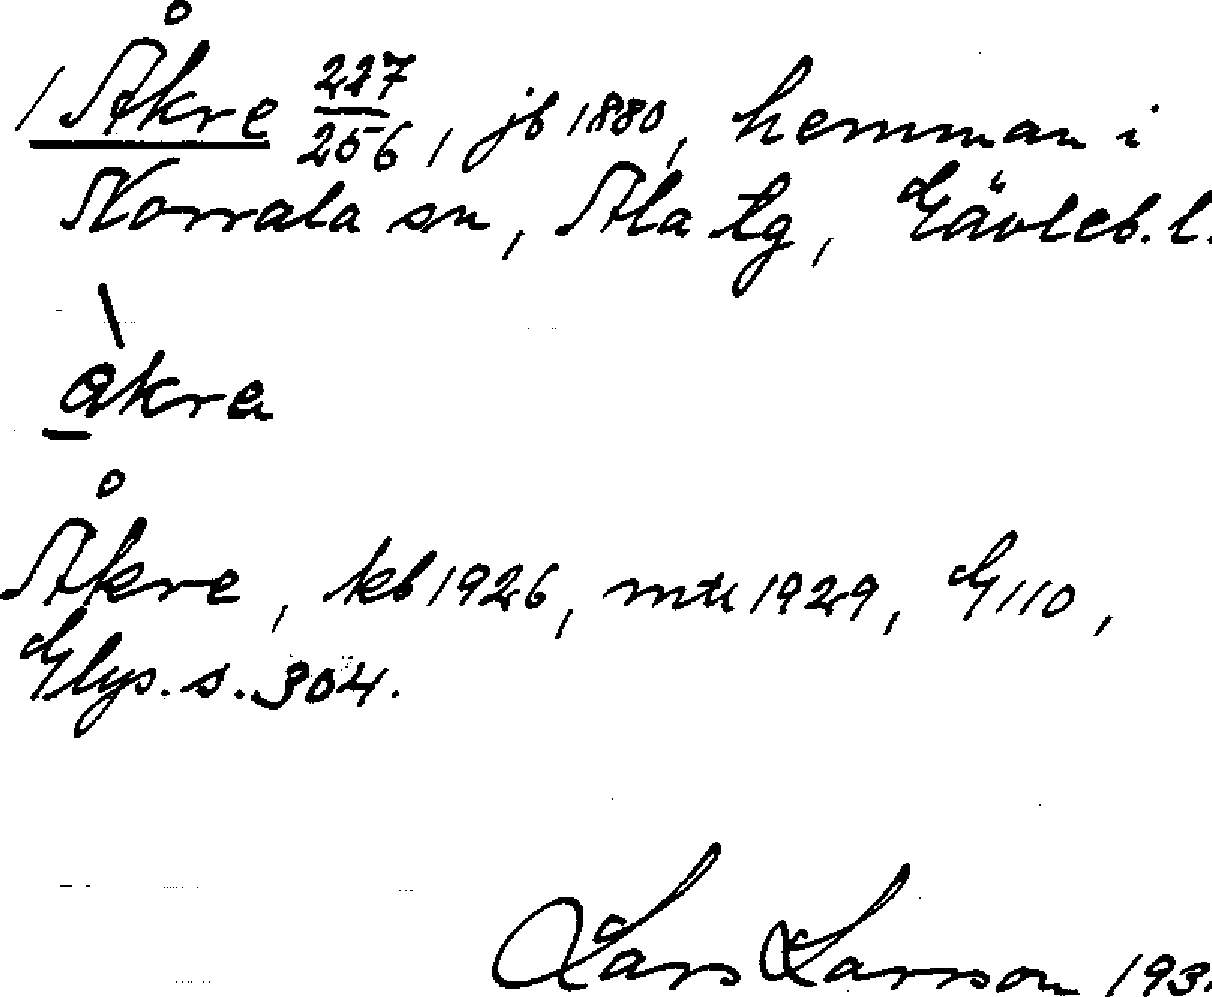 / Åkre 227/256, jb 1880, hemman i
Norrala sn, Ala tg, Gävleb. l.
åkra
Åkre, kb 1926, mtl 1929, G 110,
Glys. s. 304.
Lars Larsson 193.